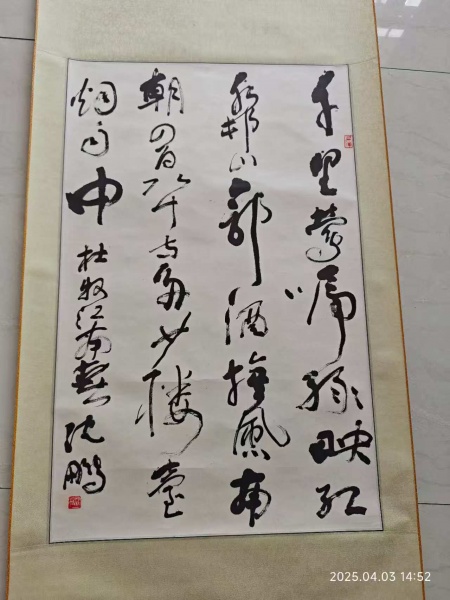 千里鶯啼綠映紅
水村山郭酒旗風南
朝四百八十寺多少樓臺
烟雨中 杜牧江南春 沈鵬
2025.04.03 14:52